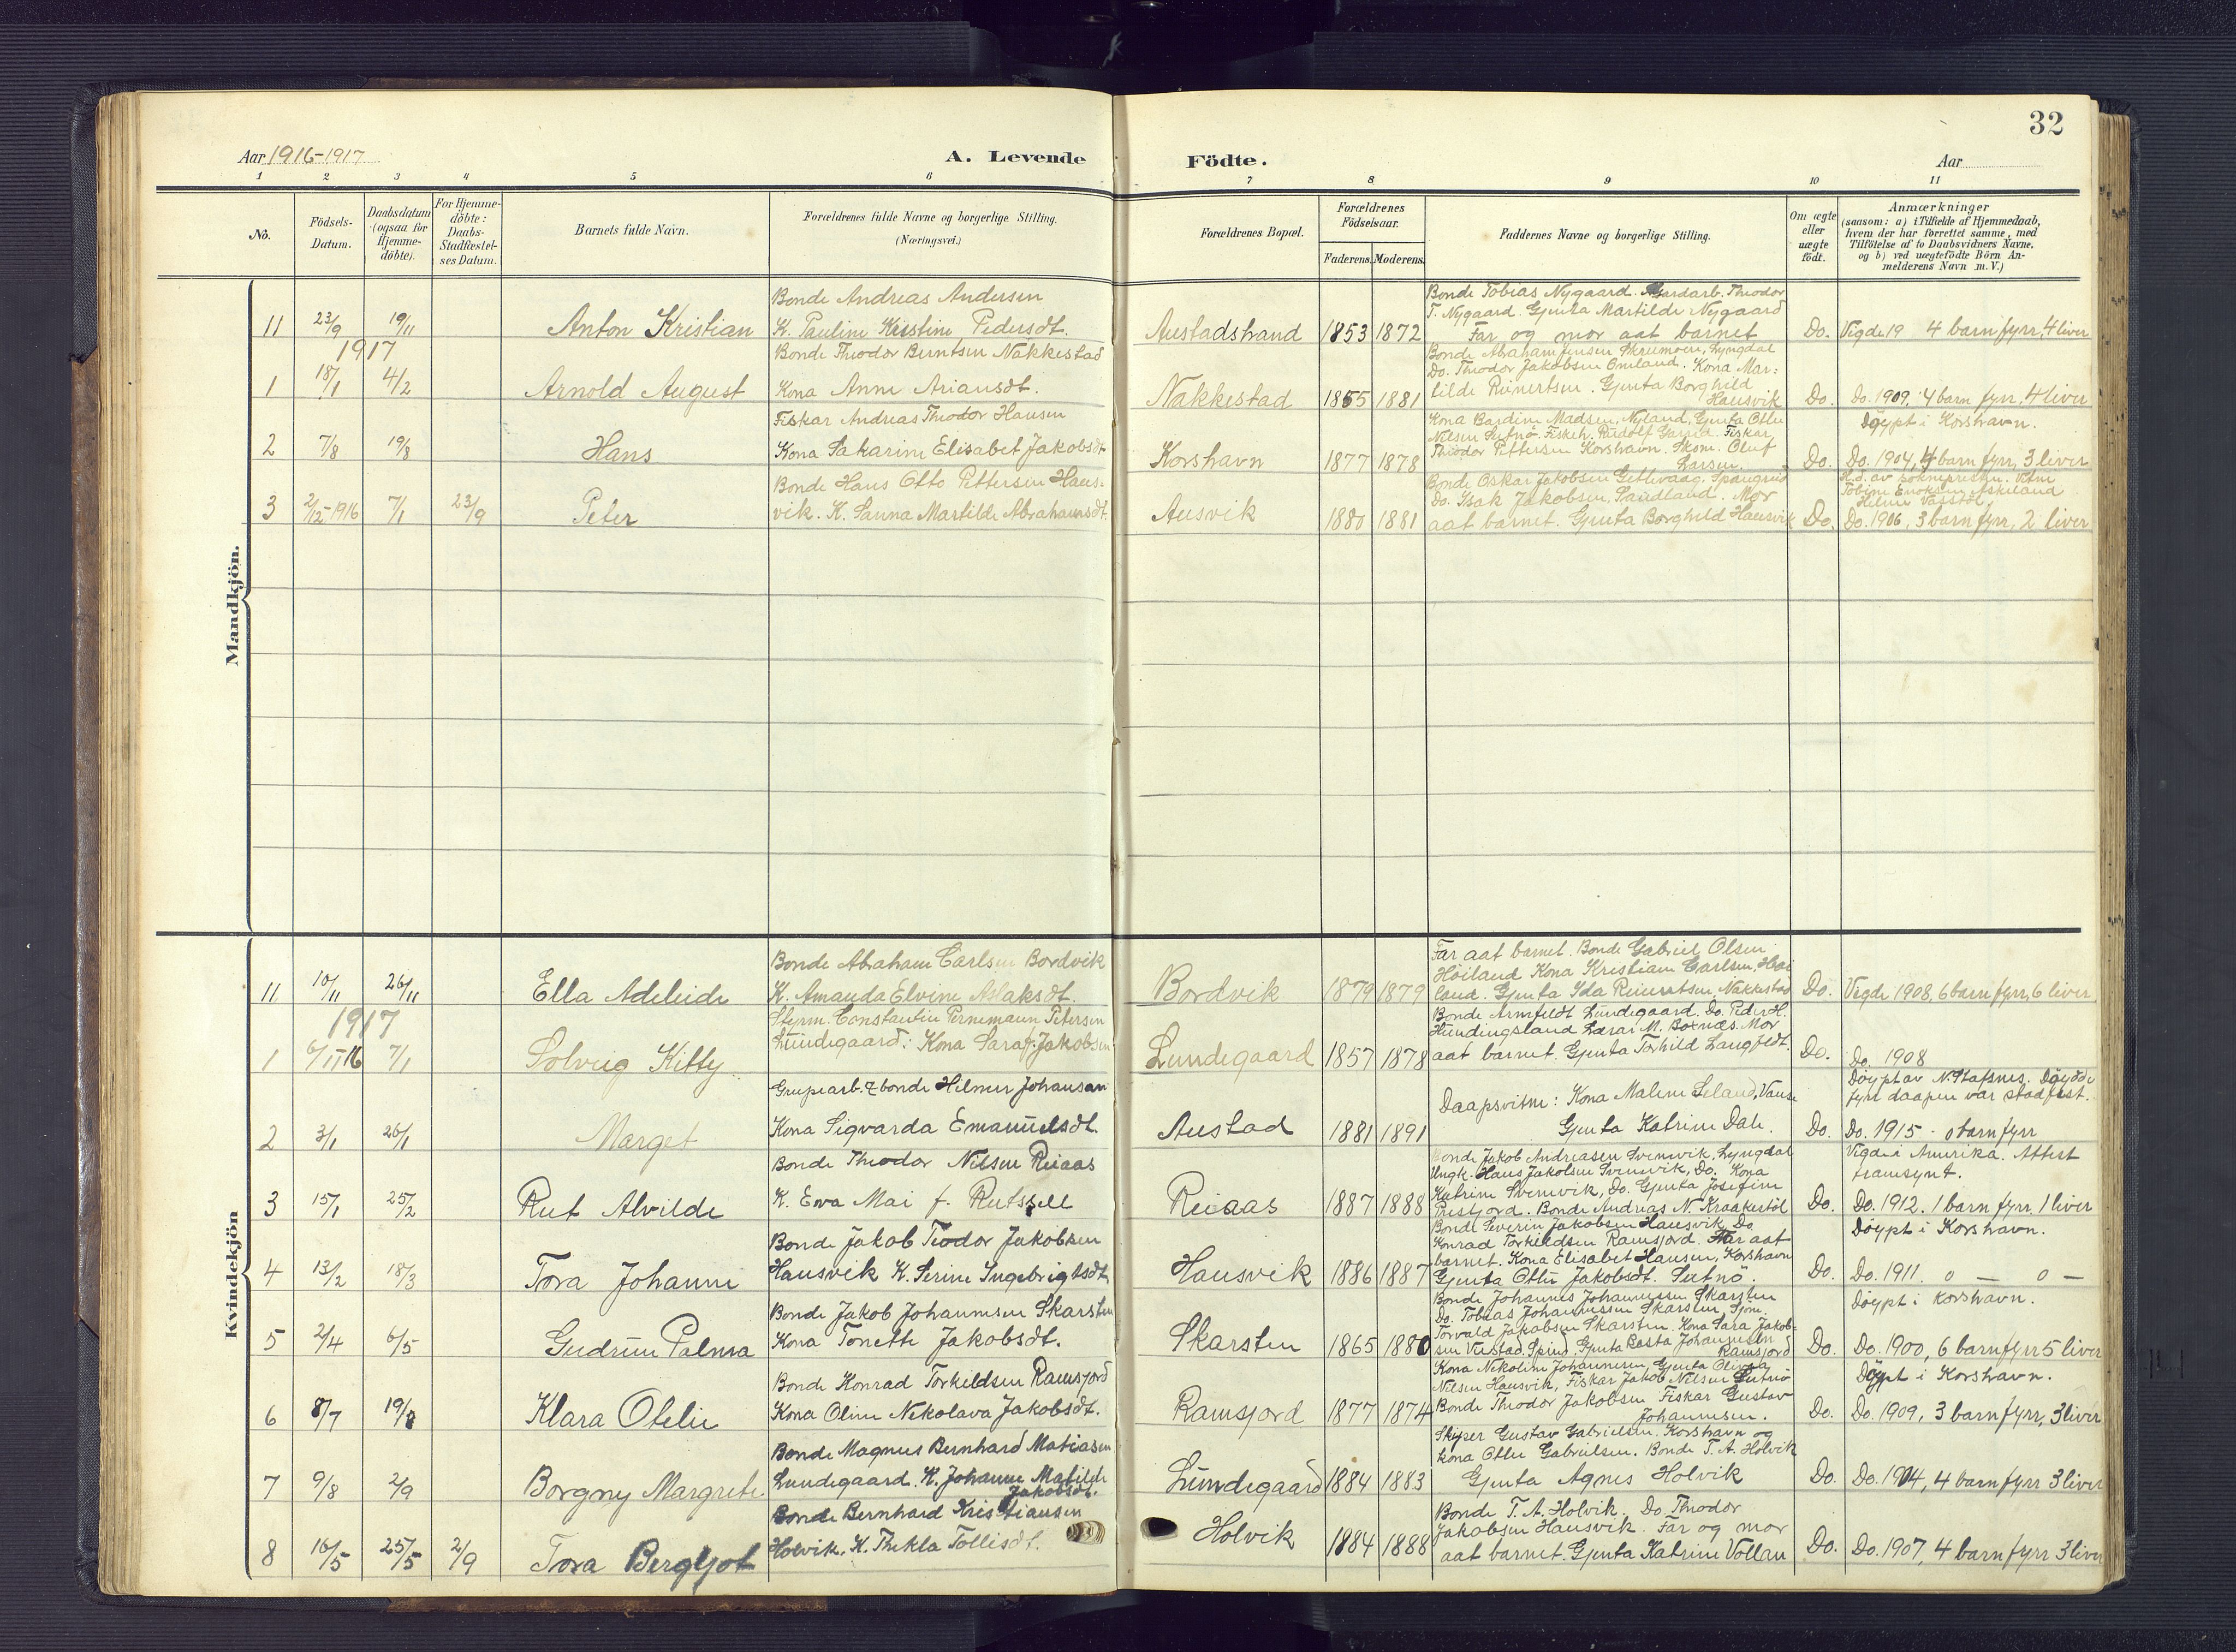 32
Aar 1916-1917
A. Levende
Födte.
Aar
1 2 3 4 5 6 7 8 9 10 11
No.
Födsels-
Datum.
Daabsdatum
(ogsaa for
Hjemme-
döbte).
For Hjemme-
döbte:
Daabs-
Stadfæstel-
ses Datum.
Barnets fulde Navn.
Forældrenes fulde Navne og borgerlige Stilling.
(Næringsvei.)
Forældrenes Bopæl.
Forældrenes
Födselsaar.
Faderens.
Moderens.
Faddernes Navne og borgerlige Stilling.
Om ægte
eller
uægte
födt.
Anmærkninger
(saasom: a) i Tilfælde af Hjemmedaab,
hvem der har forrettet samme, med
Tilföielse af to Daabsvidners Navne,
og b) ved uægtefödte Börn An-
melderens Navn m. V.)
Mandkjön.
11
23/9
19/11
Anton Kristian
Bonde Andreas Andersen
K. Pauline Kristine Pedersdt.
Austadstrand
1853
1872
Bonde Tobias Nygaard. Gardarb. Theodor
T. Nygaard. Gjenta Martilde Nygaard
Far og mor aat barnet
Do.
Vigde 19 4 barn fyrr, 4 liver
1917
1
18/1
4/2
Arnold August
Bonde Theodor Berntsen Nakkestad
Kona Anne Ariansdt.
Nakkestad
1855
1881
Bonde Abraham Jensen Skreumoen, Lyngdal
Do. Theodor Jakobsen Omland. Kona Mar:
tilde Reinertsen. Gjenta Borghild
Hausvik
Do.
Do. 1909. 4 barn fyrr, 4 liver
2
7/8
19/8
Hans
Fiskar Andreas Theodor Hansen
Kona Sakarine Elisabet Jakobsdt.
Korshavn
1877
1878
Kona Bardine Madsen, Nyland, Gjenta Otlu
Nilsen Sutnö. Fiskeh. Rudolf Gabrid. Fiskar
Theodor Pettersen Korshavn. Skom. Oluf
Larsen.
Do.
Döypt i Korshavn.
Do. 1904, 4 barn fyrr, 3 liver
3
2/12-1916
7/1
23/9
Peter
Bonde Hans Otto Pettersen Haus-
vik. K. Sanna Martilde Abrahamsdt.
Ausvik
1880
1881
Bonde Oskar Jakobsen Getlevaag. Spangreid
Do. Isak Jakobsen, Sandland. Mor
aat barnet. Gjenta Borghild Hausvik
Do.
H.d. av sokneprestn. Vitne
Tobine Enoksen Askeland
Helene Vasstöl.
Do. 1906, 3 barn fyrr, 2 liver
Kvindekjön
11
10/11
26/11
Ella Adeleide
Bonde Abraham Carlsen Bordvik
K. Amanda Elvine Aslaksdt.
Bordvik
1879
1879
Far aat barnet. Bonde Gabriel Olsen
Höiland Kona Kristiane Carlsen, Höi
land. Gjenta Ida Reinertsen, Nakkestad
Do.
Vigde 1908, 6 barn fyrr, 6 liver
1917
1
6/11 16
7/1
Solveig Kitty
Styrm. Constantin Pernemann Petersen
Lundegaard. Kona Sara f. Jakobsen
Lundegaard
1857
1878
Bonde Armfeldt Lundegaard. Do. Peder H.
Hundingsland Lærar M. Boknæs. Mor
aat barnet. Gjenta Torhild Langfeldt.
Do.
Do. 1908
2
3/1
26/1
Marget
Grupearb. & bonde Hilmer Johansan
Kona Sigvarda Emanuelsdt.
Austad
1881
1891
Daapsvitne: Kona Malene Seland, Vanse
Gjenta Katrine Dale.
Do.
Döypt av N. Stafsnes. Döydde
fyrr daapen var stadfest.
Do. 1915 - 0 barn fyrr
3
15/1
25/2
Rut Alvilde
Bonde Theodor Nilsen Reiaas
K. Eva Mai f. Rutssell
Reiaas
1887
1888
Bonde Jakob Andreasen Svennevik, Lyngdal
Ungk. Hans Jakobsen Svenevik, Do. Kona
Katrine Svennevik, Do. Gjenta Josefine
Presfjord. Bonde Andreas N. Kraakestöl
Do.
Vigde i Amerika. Attest
framsynt.
Do. 1912. 1 barn fyrr, 1 liver
4
13/2
18/3
Tora Johanne
Bonde Jakob Teodor Jakobsen
Hausvik K. Serine Ingebrigtsdt.
Hausvik
1886
1887
Bonde Severin Jakobsen Hausvik, Do.
Konrad Torkeldsen Ramsjord. Far aat
barnet. Kona Elisabet Hansen, Korshavn
Gjenta Otlu Jakobsdt. Sutnö.
Do.
Döypt i Korshavn.
Do. 1911. 0 — 0 —
5
2/4
6/5
Gudrun Palma
Bonde Jakob Johannesen Skarsten
Kona Tonette Jakobsdt.
Skarsten
1865
1880
Bonde Johannes Johannessen Skarsten
Do. Tobias Johannessen Skarsten, Sjöm.
Torvald Jakobsen Skarsten. Kona Sara Jakob-
sen Verstad, Spind. Gjenta Rasta Johannesen
Ramsjord
Do.
Döypt i Korshavn.
Do. 1900, 6 barn fyrr 5 liver
6
8/7
19/8
Klara Otelie
Bonde Konrad Torkeldsen Ramsjord
Kona Oline Nekolava Jakobsdt.
Ramsjord
1877
1874
Kona Nekoline Johannesen, Gjenta Olivia
Nilsen Hausvik, Fiskar Jakob Nilsen Sutnö
Bonde Theodor Jakobsen Fiskar Gustav
Johannesen.
Do.
Döypt i Korshavn.
Do. 1909, 3 barn fyrr, 3 liver
7
9/8
2/9
Borgny Margrete.
Bonde Magnus Bernhard Matiasen
Lundegaard. K. Johanne Matilde
Jakobsdt.
Lundegaard
1884
1883
Skiper Gustav Gabrielsen. Korshavn og
kona Otlu Gabrielsen. Bonde T. A. Holvik
Gjenta Agnes Holvik
Do.
Do. 1904, 4 barn fyrr 3 liver
8
16/5
25/5
2/9
Tora Bergljot
Bonde Bernhard Kristiansen
Holvik. K. Thekla Tollisdt.
Holvik
1884
1888
Bonde T. A. Holvik, Do. Theodor
Jakobsen Hausvik. Far og mor
aat barnet. Gjenta Katrine Vollan
Do.
Do. 1907, 4 barn fyrr 3 liver